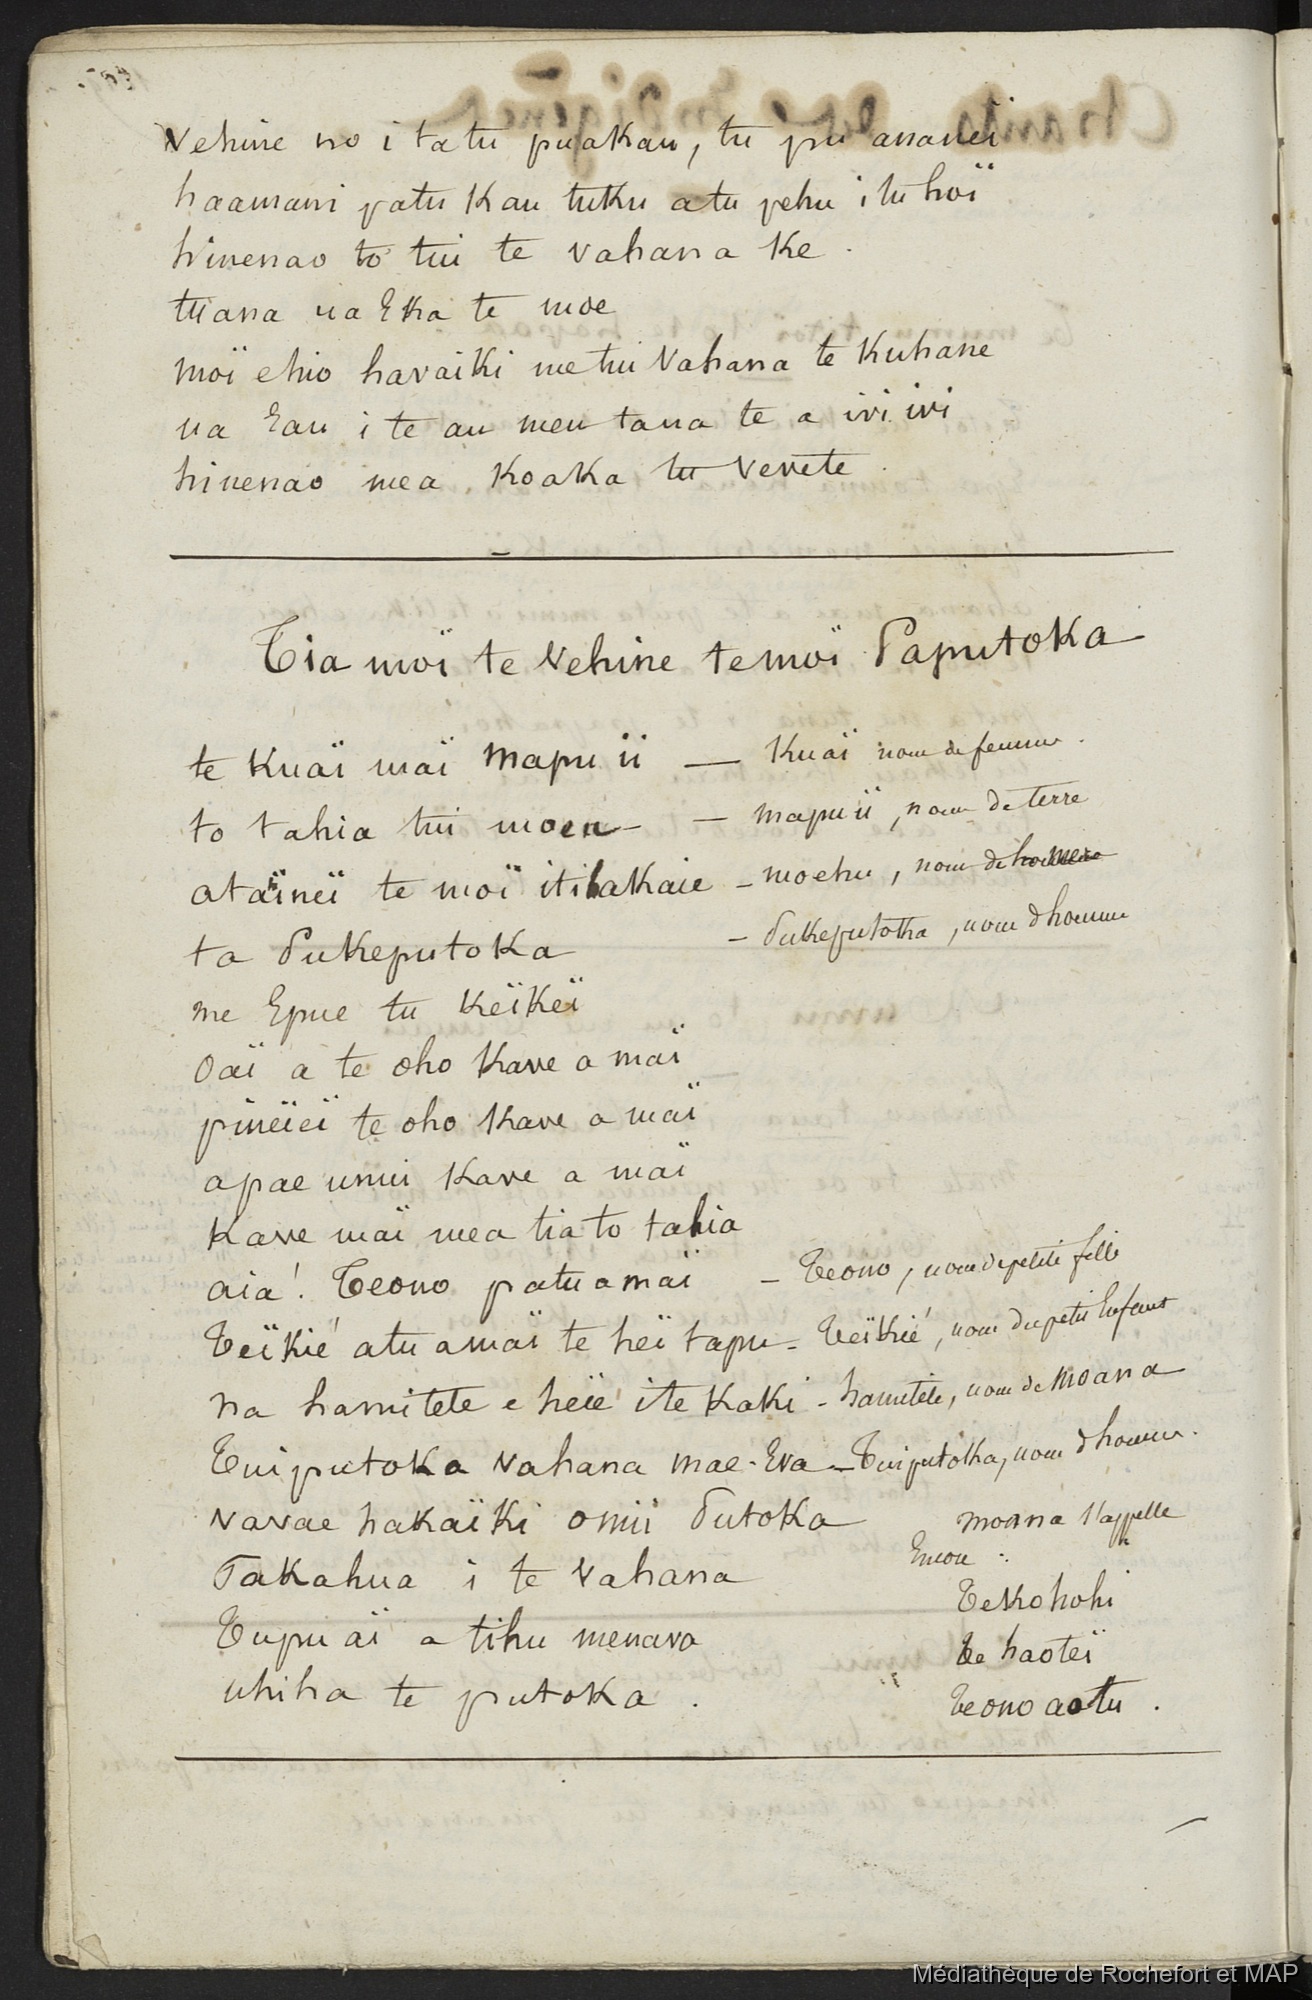 Vehine no i tatu puakau, tu pu ananeï
haamani patu Kau tuku atu pehu i tu hoï
hinenao to tui te vahana Ke.
tiana ua Eka te moe
moï ehio havaiki me tui Vahana te Kuhane
ua Eau i te au meu taua te a ivi ivi
hinenao mea Koaka tu Vevete.
Tia moï te Vehine te moï Paputoka
te Kuaï maï Mapu ii — Kuaï nom de femme.
to tahia tui moeu - — Mapu ii, nom de terre
ataïneï te moï iti hakaie - moehu, nom de homme
ta Pukeputoka - Pukeputoka, nom d'homme
me Epue tu Keïkeï
Oaï a te oho Kave a maï
pineïeï te oho Kave a maï
apae umii Kave a maï
Kave maï mea tia to tahia
aia! Teono patu a maï - Teono, nom de petite fille
Teïkié atu a maï te heï tapu - Teïkié, nom du petit Enfant
na hamitete e heïe i te Kaki - hamitete, nom de Moana
Tuiputoka Vahana mae. Eva - Tuiputoka, nom d'homme.
Vavae hakaïki omii Putoka
Moana s'appelle
Encore :
Takahua i te Vahana
Tekohohi
Tupu aï a tihu menava
Te haoteï
uhiha te putoka.
Teono aotu.
Médiathèque de Rochefort et MAP